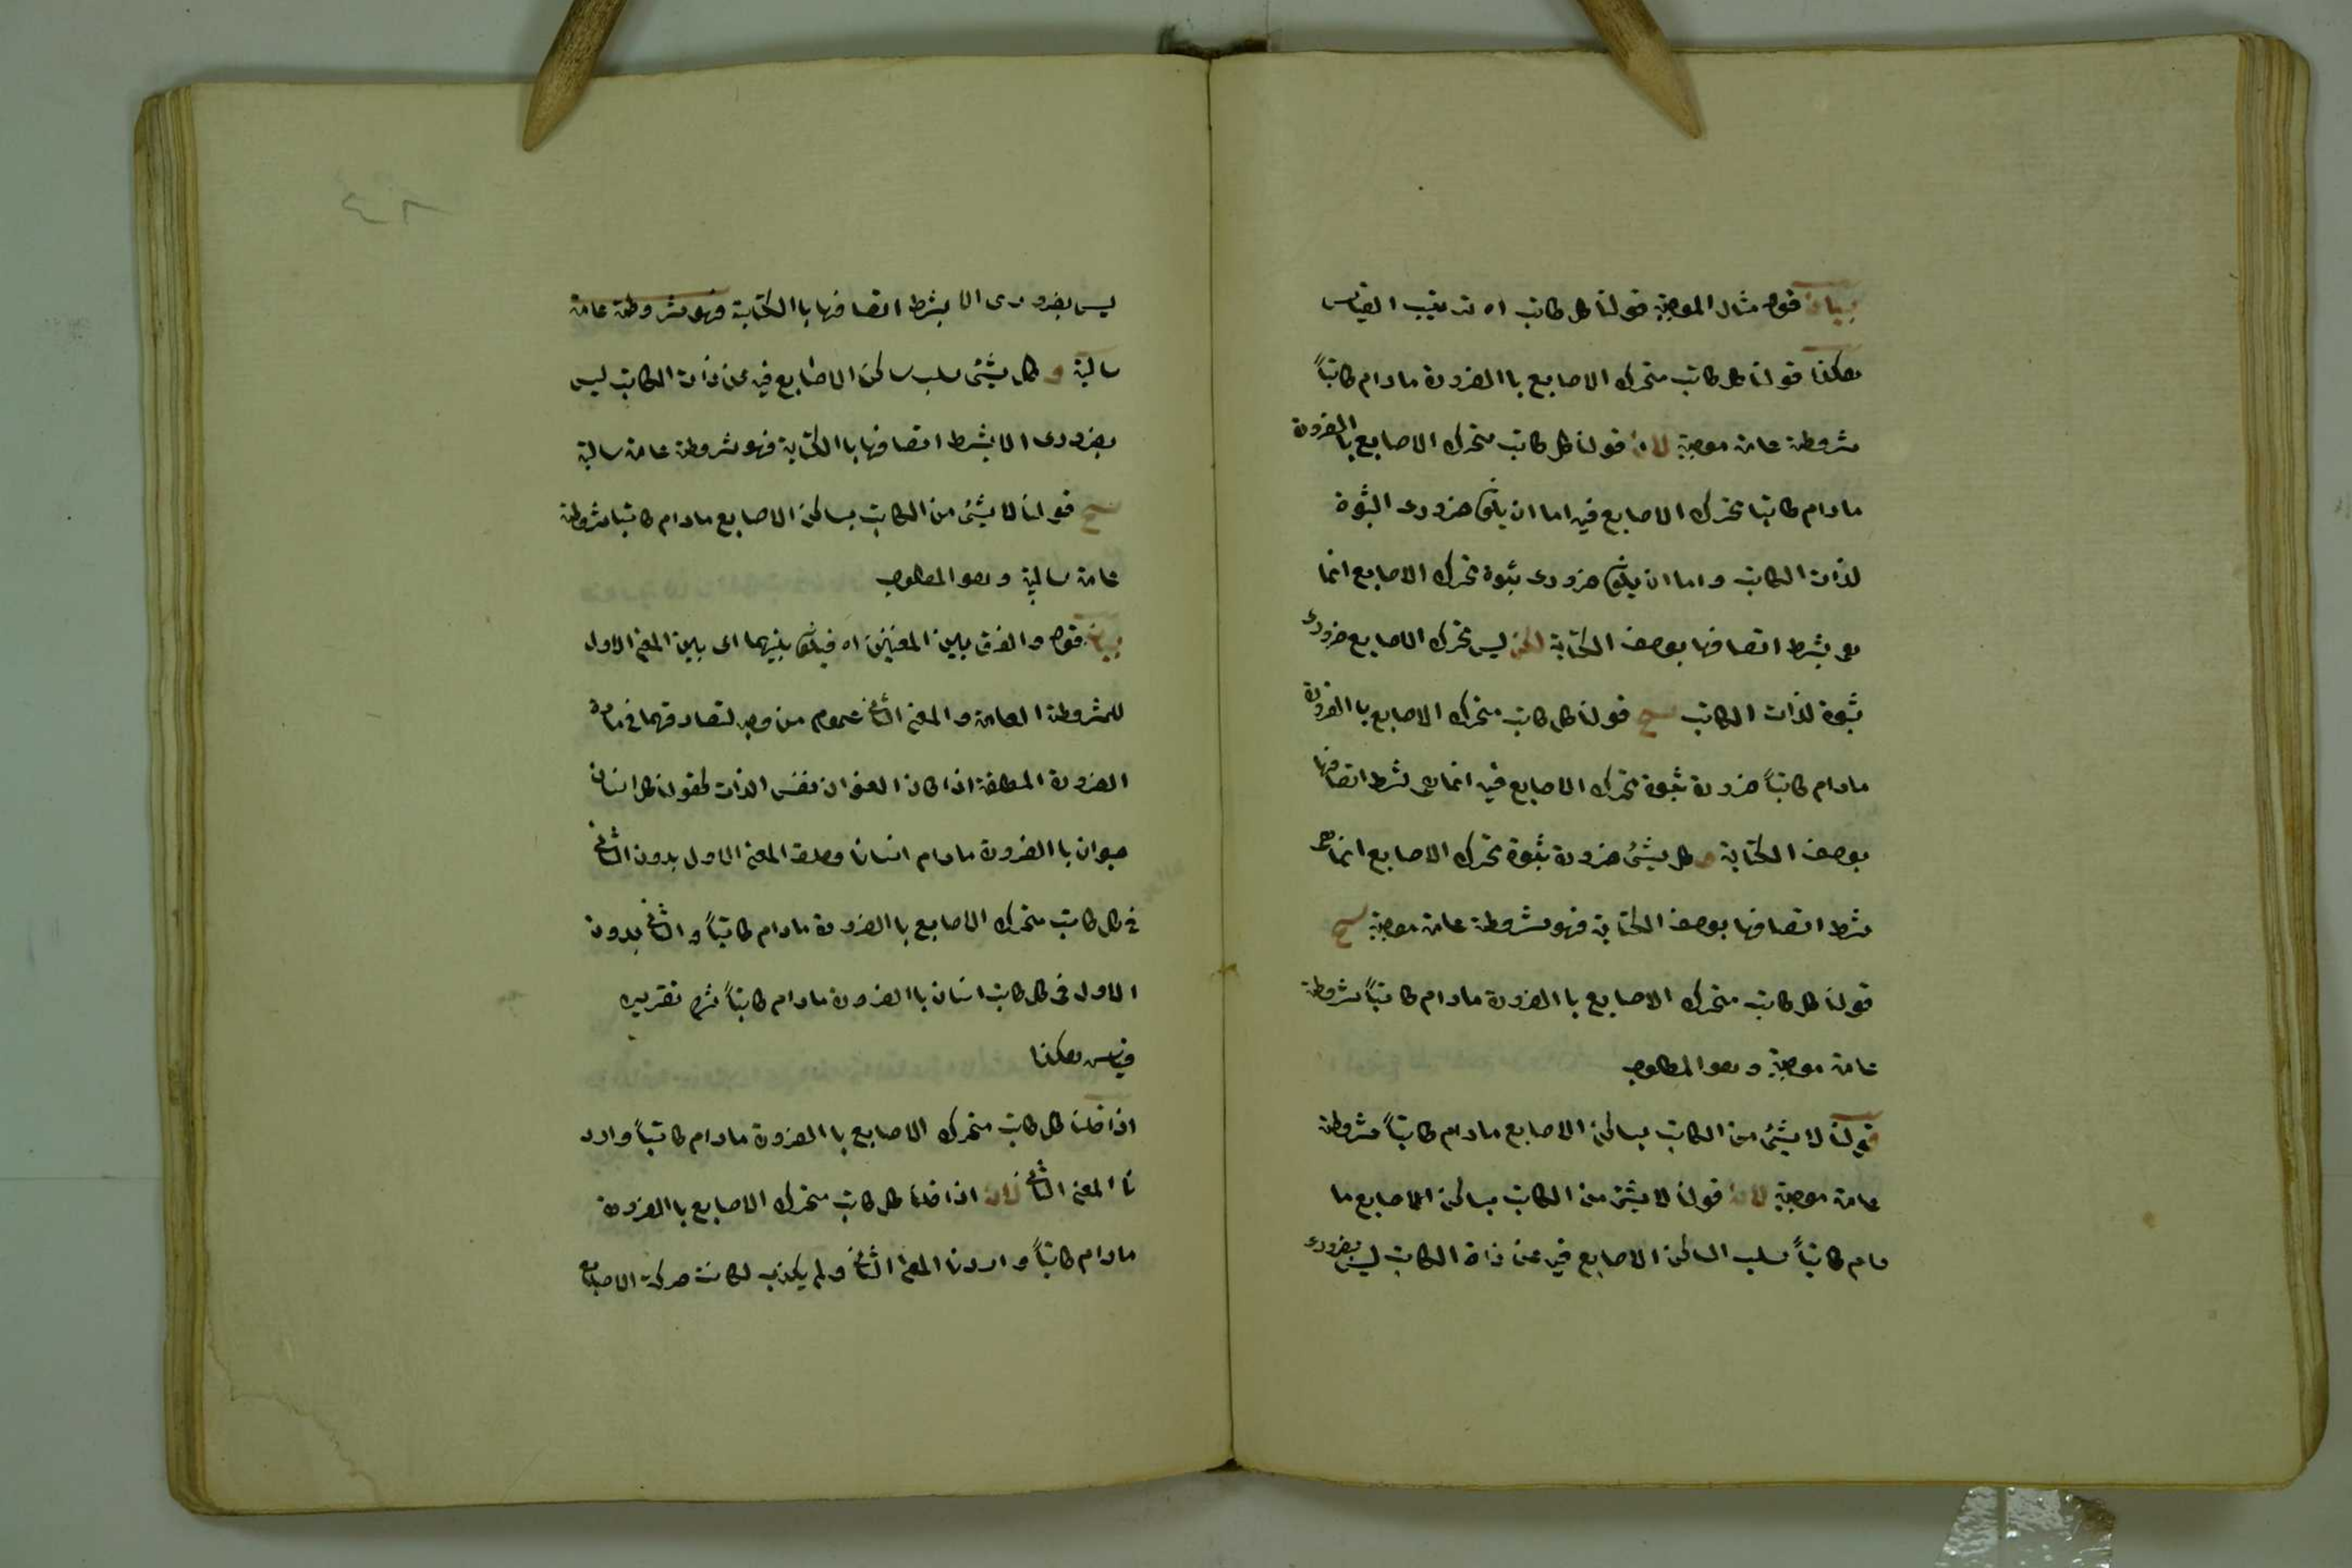 بيان قوله مثال الموجبة قولنا كل كاتب اه ترتيب القياس
هكذا قولنا كل كاتب متحرك الاصابع باالضرورة مادام كاتباً
مشروطة عامة موجبة لان قولنا كل كاتب متحرك الاصابع باالضرورة
مادام كاتبا تحرك الاصابع فيه اما ان يكون ضرورى الثبوة
لذات الكاتب واما ان يكون ضرورى ثبوة تحرك الاصابع انما
هى بشرط اتصافها بوصف الكتابة لكن ليس تحرك الاصابع ضرورى
ثبوة لذات الكاتب ينتج قولنا كل كاتب متحرك الاصابع باالضرورة
مادام كاتباً ضرورة ثبوة تحرك الاصابع فيه انما هى بشرط اتصافها
بوصف الكتابة و كل شئ ضرورة ثبوة تحرك الاصابع انما هى
بشرط اتصافها بوصف الكتابة فهو مشروطة عامة موجبة ينتج
قولنا كل كاتب متحرك الاصابع باالضرورة مادام كاتباً مشروطة
عامة موجبة وهو المطلوب
قولنا لا شئ من الكاتب بساكن الاصابع مادام كاتباً مشروطة
عامة موجبة لان قولنا لا شئ من الكاتب بساكن الاصابع ما
دام كاتباً سلب الساكن الاصابع فيه عن ذاة الكاتب ليس بضرورى
ليس بضرورى الا بشرط اتصافها باالكتابة فهو مشروطة عامة
سالبة و كل شئ سلب ساكن الاصابع فيه عن ذات الكاتب ليس
بضرورى الا بشرط اتصافها باالكتابة فهو مشروطة عامة سالبة
ينتج قولنا لا شئ من الكاتب بساكن الاصابع مادام كاتبا مشروطة
عامة سالبة وهو المطلوب
بيان قوله والفرق بين المعنيين اه فيكون بينهما اى بين المعنى الاول
للمشروطة العامة والمعنى الثانى عموم من وجه لتصادقهما فى مادة
الضرورة المطلقة اذا كان العنوان نفس الذات كقولنا كل انسان
حيوان باالضرورة مادام انسانا وصدق المعنى الاول بدون الثانى
فى كل كاتب متحرك الاصابع باالضرورة مادام كاتباً والثانى بدون
الاول فى كل كاتب انسان باالضرورة مادام كاتباً تقرير
قياس هكذا
اذا قلنا كل كاتب متحرك الاصابع باالضرورة مادام كاتباً وارد
نا المعنى الثانى لان اذا قلنا كل كاتب متحرك الاصابع باالضرورة
مادام كاتباً واردنا المعنى الثانى ولم يكذب لكانت حركة الاصابع